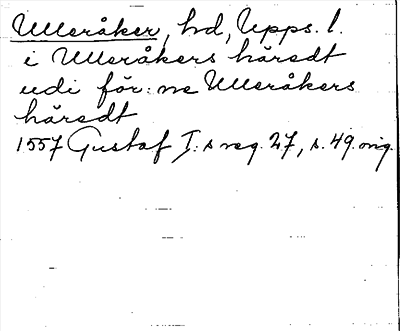 Ulleråker, hd, Upps. l.
i Ulleråkers häredt
udi för: ne Ulleråkers
häredt
1557 Gustaf I: s reg. 27, s. 49. orig.